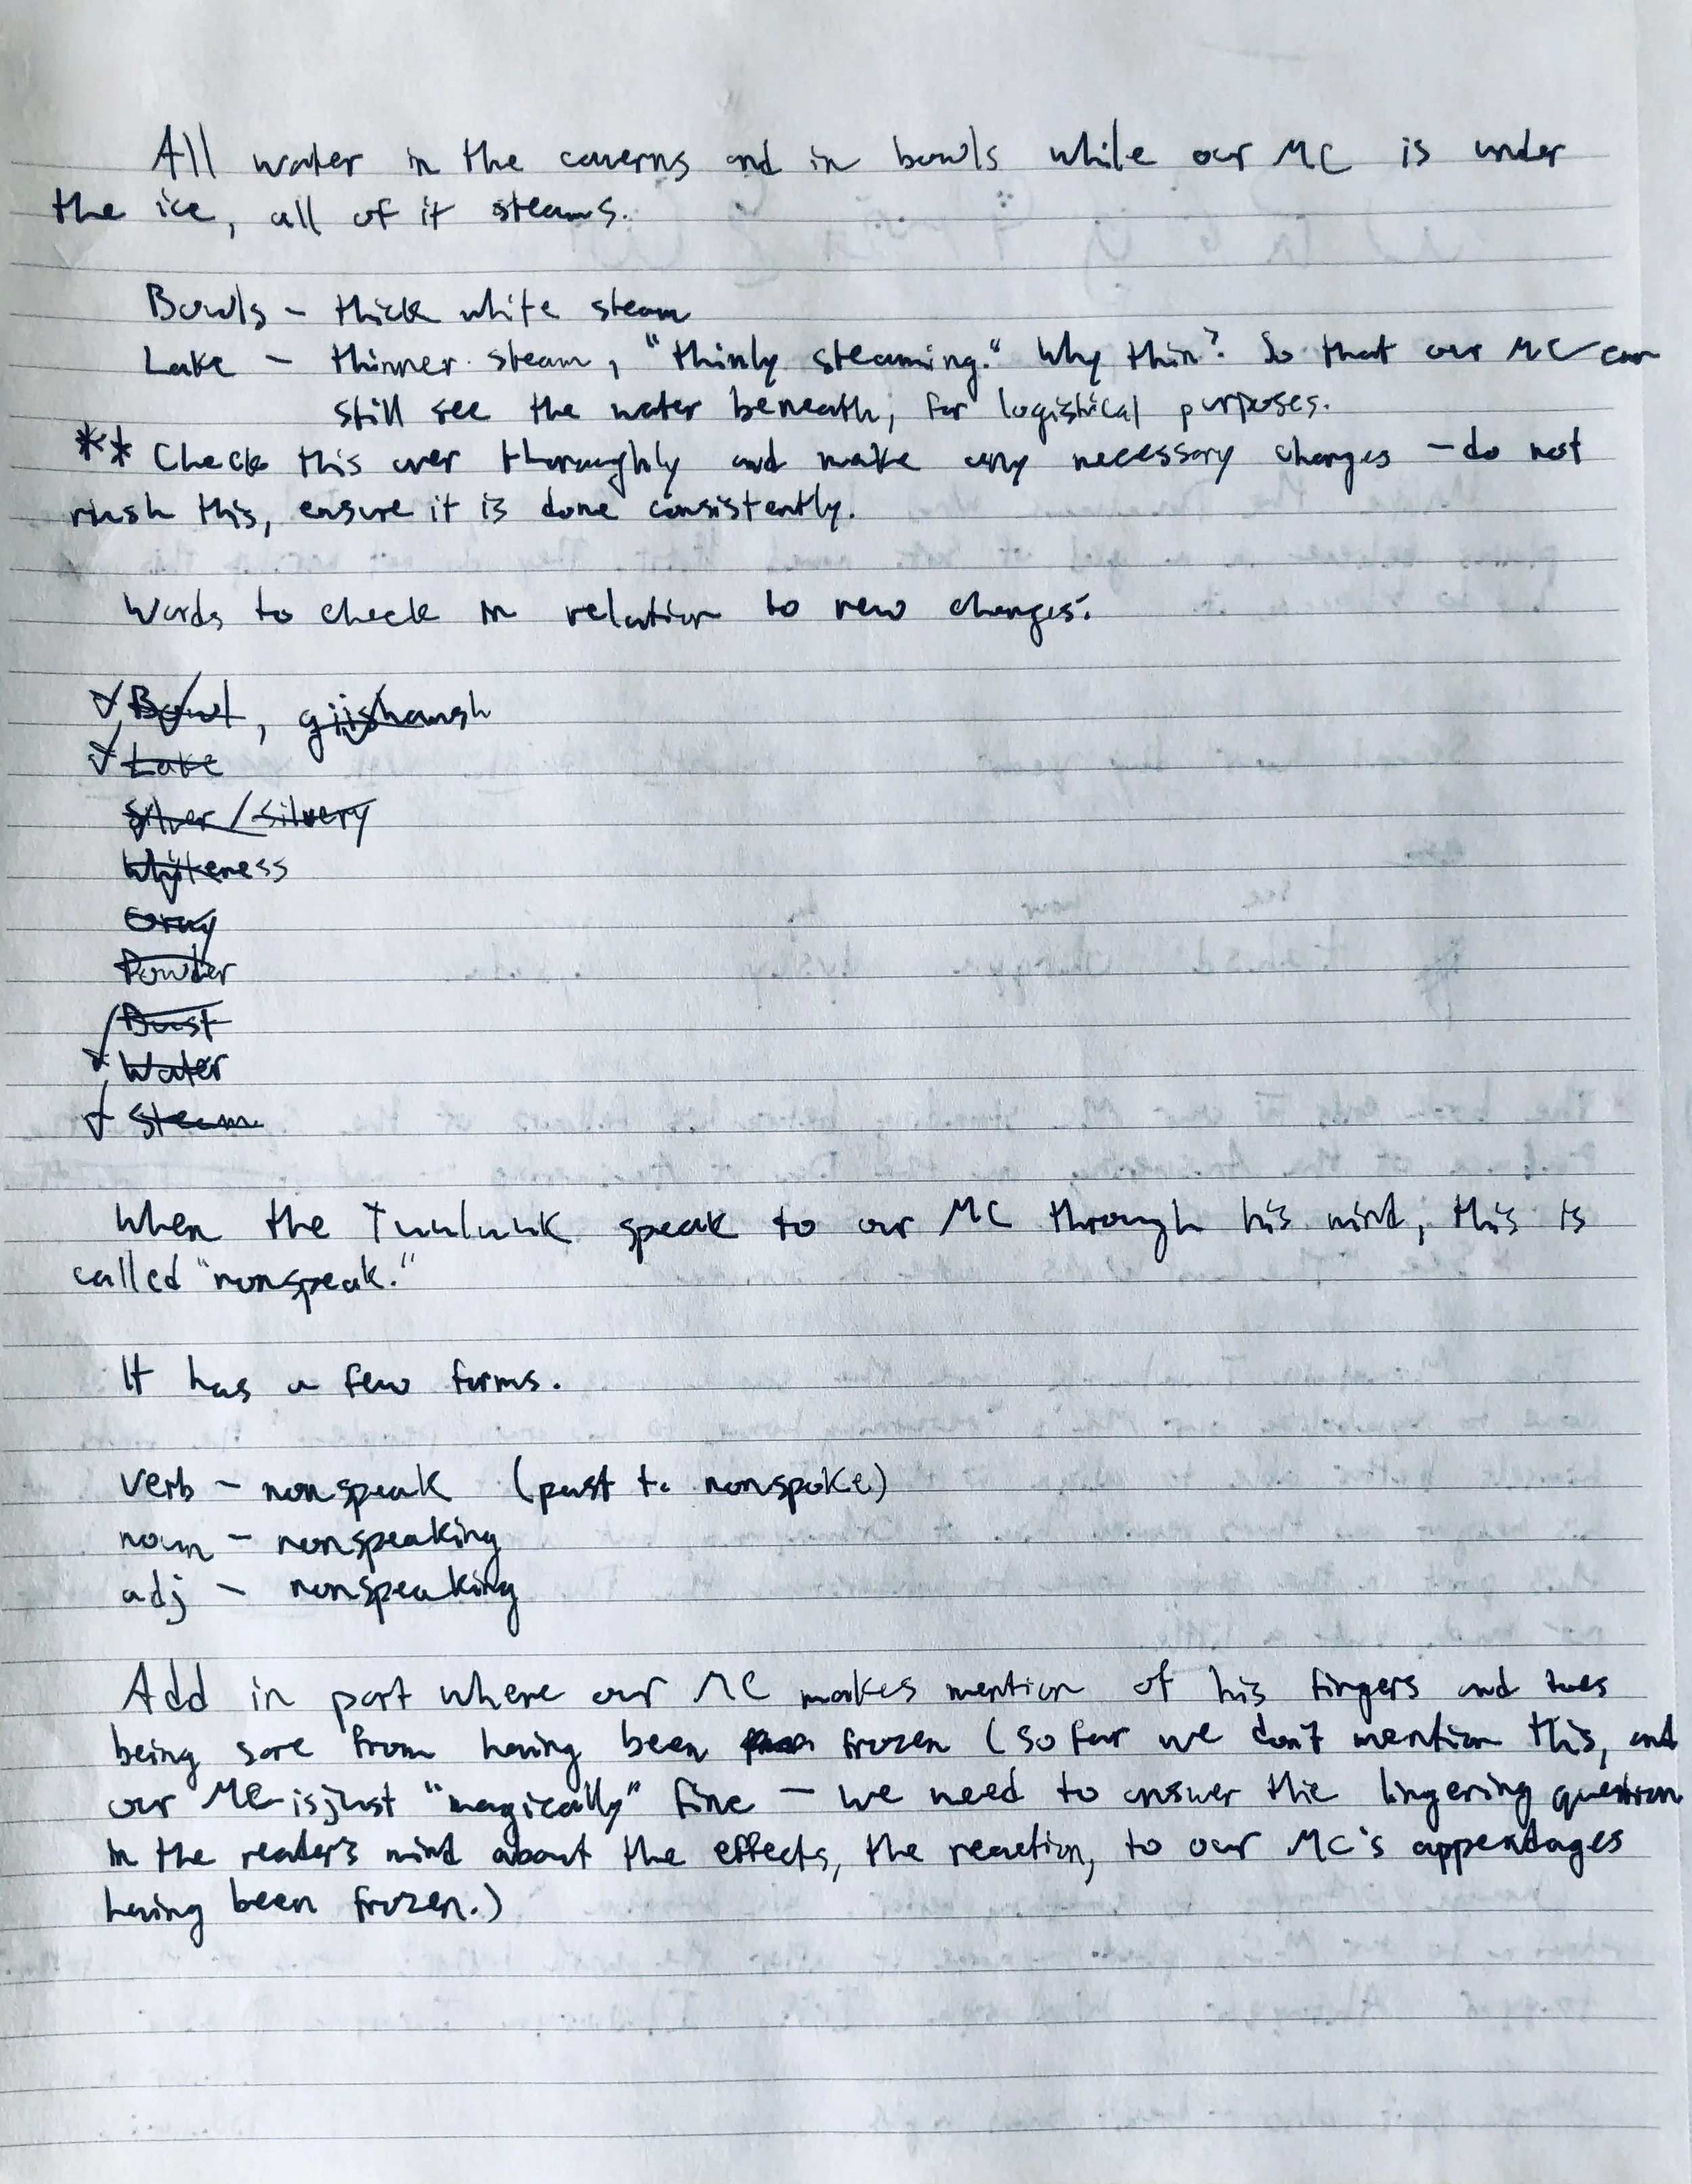 All water in the caverns and in bowls while our MC is under
the ice, all of it steams.
Bowls – thick white steam
Lake – thinner steam, "thinly steaming." Why thin? So that our MC can
still see the water beneath, for logistical purposes.
** Check this over thoroughly and make any necessary changes – do not
rush this, ensure it is done consistently.
Words to check in relation to new changes:
✓ Bowl, giishamsh
✓ Lake
Silver / silvery
Whiteness
Gray
Powder
Dust
✓ Water
✓ Steam
When the Tuuluuk speak to our MC through his mind, this is
called "nonspeak."
It has a few forms.
verb – nonspeak (past t. nonspoke)
noun – nonspeaking
adj – nonspeaking
Add in part where our MC makes mention of his fingers and toes
being sore from having been frozen (so far we don't mention this, and
our MC is just "magically" fine – we need to answer the lingering question
in the reader's mind about the effects, the reaction, to our MC's appendages
having been frozen.)